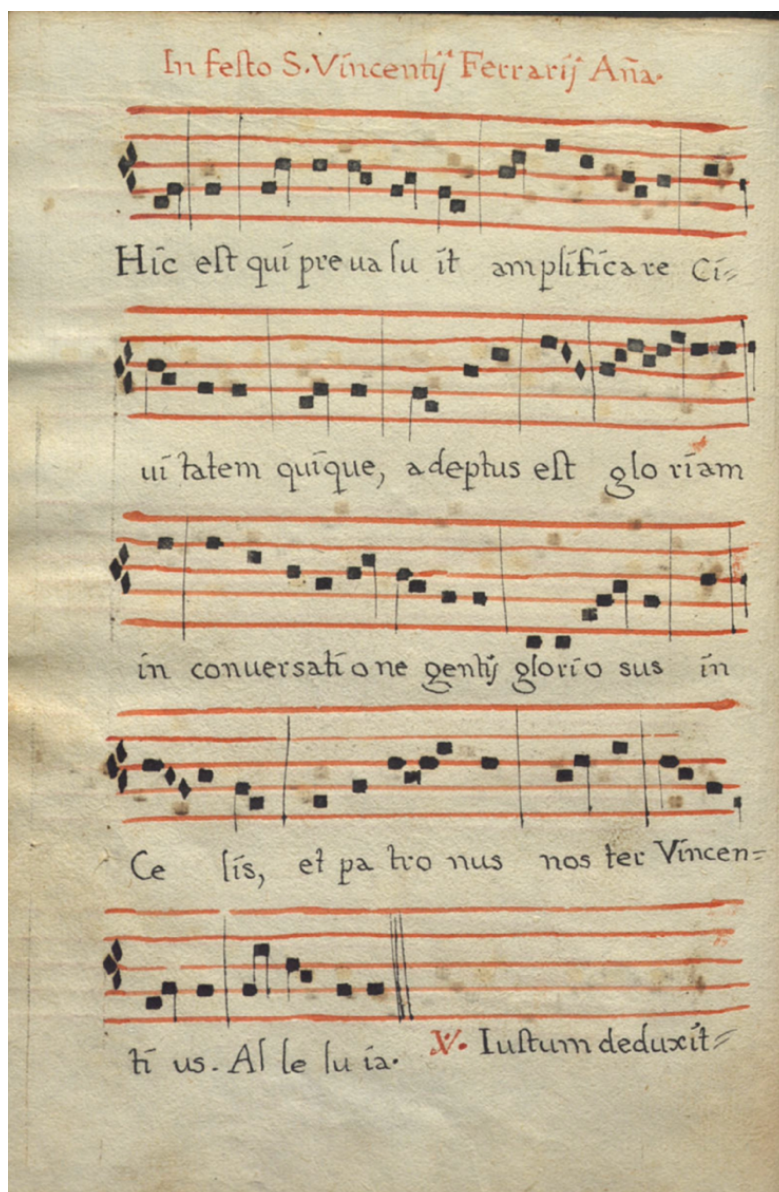 In festo S. Vincentij Ferrarij Aña.
Hic est qui preualu it amplificare Ci=
ui tatem quique, adeptus est glo riam
in conuersatione gentis glorio sus in
Ce lis, et pa tro nus nos ter Vincen=
ti us. Al le lu ia. V. Iustum deduxit=